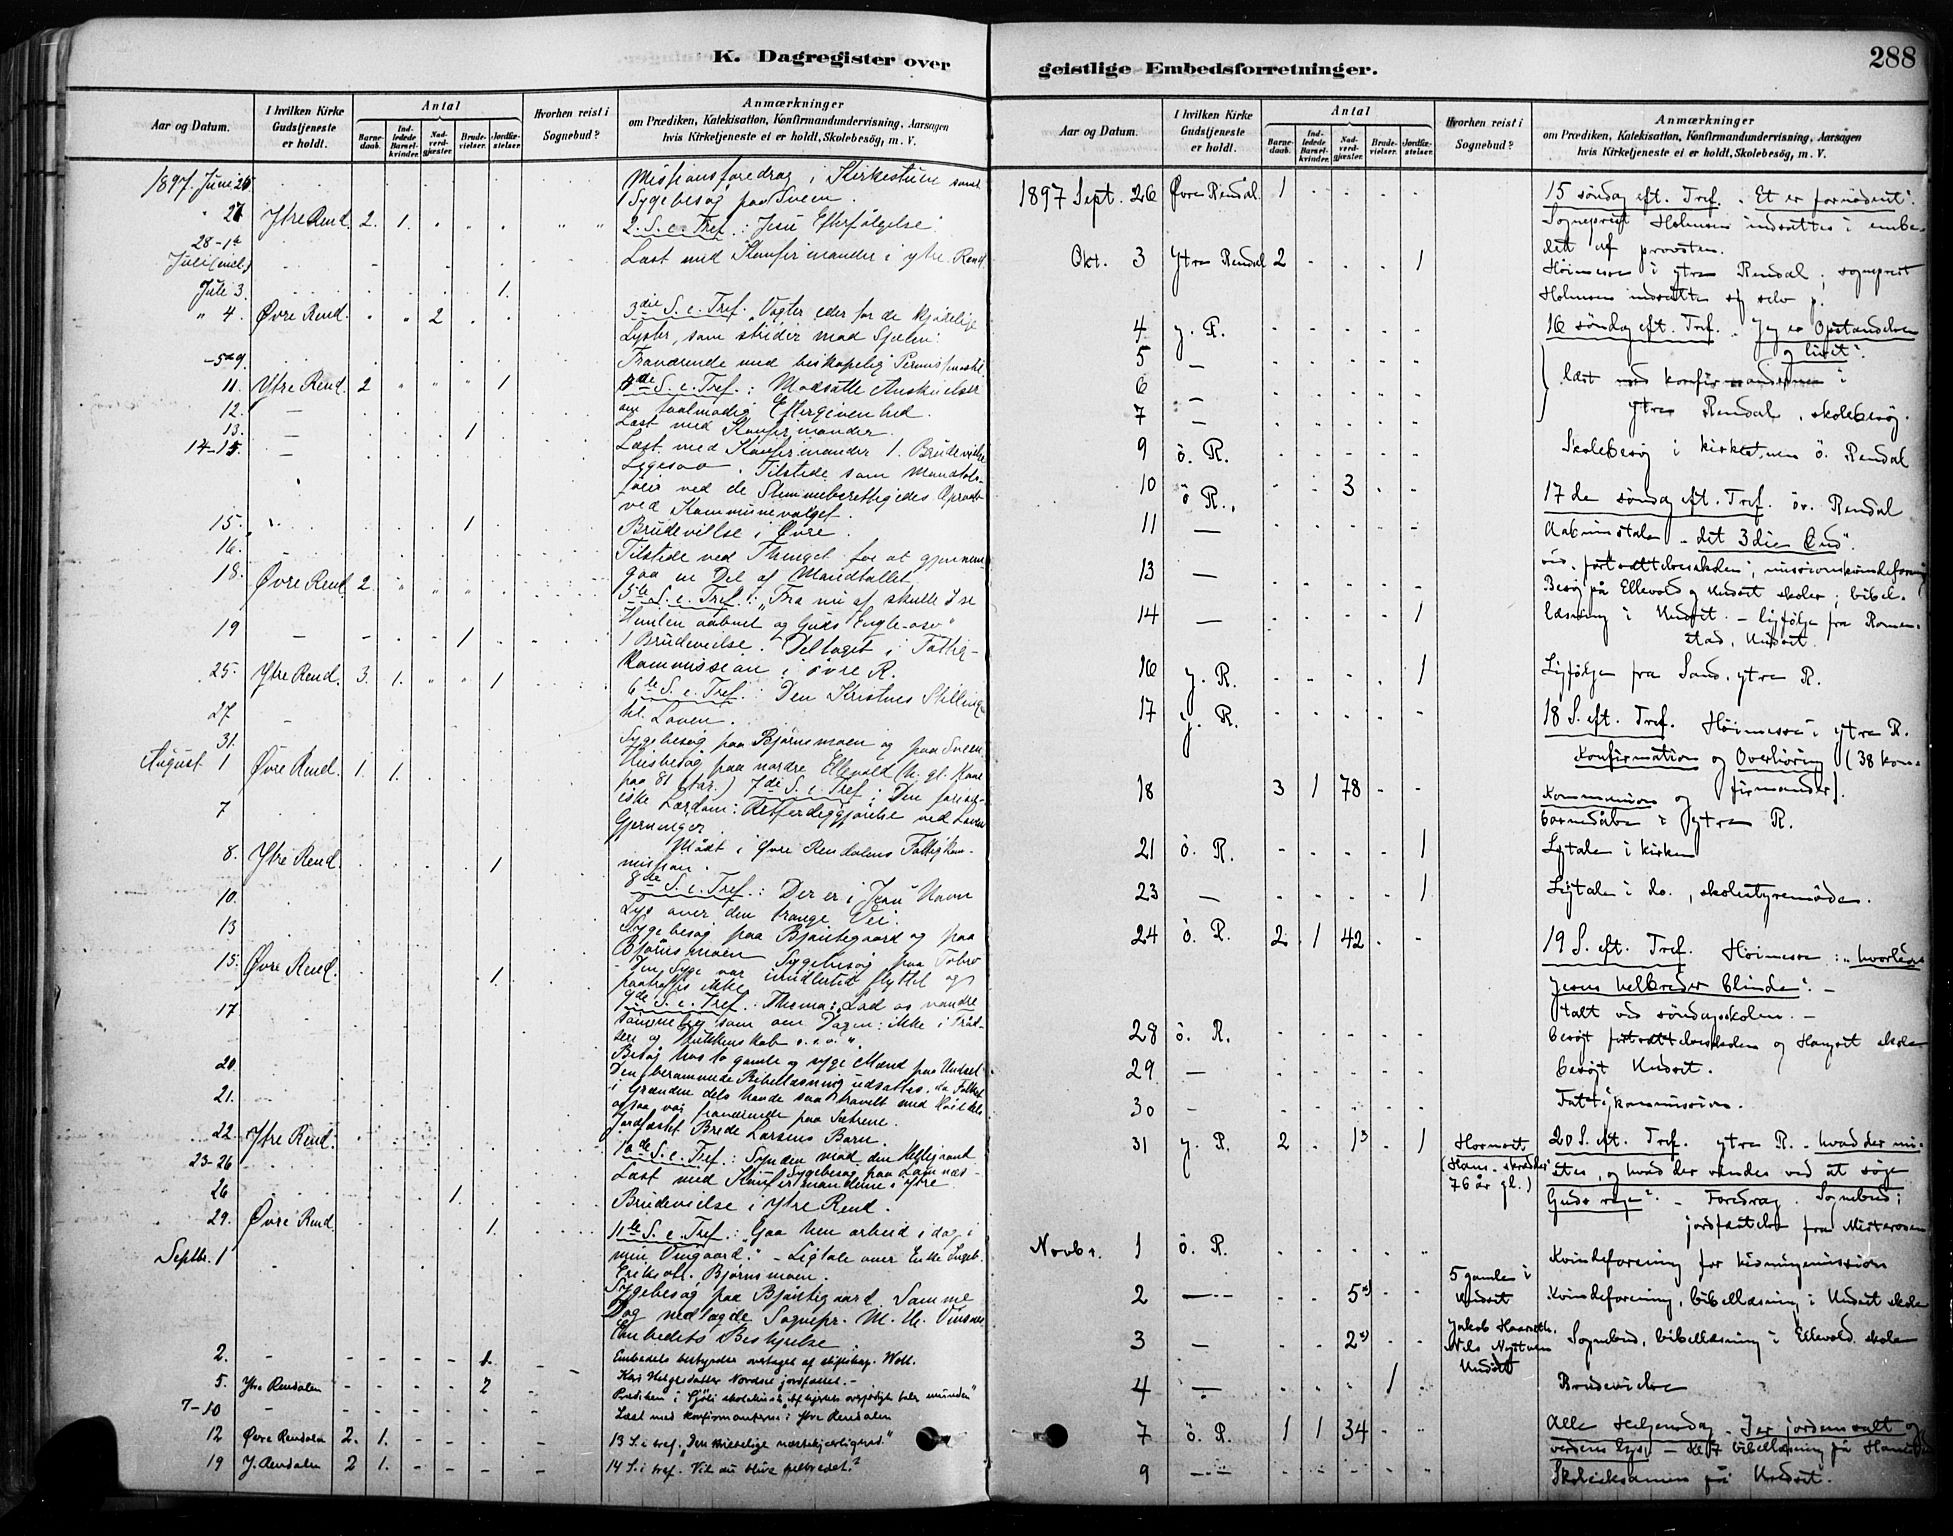 K. Dagregister over
Aar og Datum.
I hvilken Kirke Gudstjeneste er holdt.
Antal
Barne-daab.
Ind-ledede Barsel-kvinder.
Nad-verd-gjæster.
Brude-vielser.
Jordfæ-stelser.
Hvorhen reist i Sognebud?
Anmærkninger
om Prædiken, Katekisation, Konfirmandundervisning, Aarsagen
hvis Kirketjeneste ei er holdt, Skolebesög, m. V.
1897. Juni 26 Missionsforedrag i Kirkestuen samt
1 Sygebesøg paa Sveen.
" 27 Ytre Rend. 2. 1. 2. S. e. Tref.: Jesu Efterfølgelse
28-1ste Juli (incl.) Læst med Konfirmander i ytre Rend.
Juli 3. 1.
" 4. Øvre Rend. " " 2 3die S. e. Tref. "Vogter eder for de kjødelige
Lyster, som strider mod Sjælen".
-5-9. Fraværende med biskopelig Permission
11. Ytre Rend. 2 " " " 1 de S. e. Tref.: Modsatte
om taalmodig Eftergivenhed.
12. — Læst med Konfirmander.
13. — 1 Læst med Konfirmander 1. Brudevielse
14-15. Tilstede som Mandtals-
fører ved de Stemmeberettigedes Opraab
ved Kommunevalget.
15. 1 Brudevielse i Øvre.
16. Tilstede ved Thinget for at gjennem-
gaa en Del af Mandtallet
18. Øvre Rend. 2 " " " 5te S. e. Tref.: "Fra nu af skulle I se
Himlen aabnet og Guds Engle osv"
19 — 1 1 Brudevielse. Deltaget i Fattig-
Kommissionen i øvre R.
25. Ytre Rend. 3. 1. " " 1 6te S. e. Tref.: Den Kristnes Stilling
til Loven.
27 Sygebesøg paa Bjørnsmoen og paa Sveen
31. Husbesøg paa nordre Ellevold
paa 81 Aar.)
August 1 Øvre Rend. 1. 1. 7de S. e. Tref.: Den farisæ-
iske Lærdom: Retfærdiggjørelse ved Lovens
Gjerninger.
7 Mødt i Øvre Rendalens Fattigkom-
mission.
8. Ytre Rend. 1 8de S. e. Tref.: Der er i Jesu Navn
Lys over den trange Vei.
10. Sygebesøg paa Bjøntegaard og paa
Bjørnsmoen
13 Sygebesøg paa
Den Syge var imidlertid flyttet og
paatraffes ikke
15. Øvre Rend. 1. 9de S. e. Tref.: Thema: Lad os vandre
sømmelig som om Dagen: ikke i Fraad-
seri og Drukkenskab o.s.v."
17 Besøg hos to gamle og syge Mænd paa Undset
20. Den berammede Bibellæsning udsattes, da Folket
i Grænden dels havde saa travelt med
ogsaa var fraværende paa Sætrene.
21. Jordfæstet Brede Larsens Barn.
22. Ytre Rend. 10de S. e. Tref.: Synden mod den Helligaand
Sygebesøg paa Lomnæs
23-26 Læst med Konfirmanderne i Ytre
26 1. Brudevielse i Ytre Rend.
29. Øvre Rend. 1. 11te S. e. Tref.: "Gaa hen arbeid i dag i
min Vingaard." - Ligtale over Enke Ingeb.
Eriksdt. Bjørnsmoen.
Septbr. 1 Sygebesøg paa Bjøntegaard Samme
Dag nedlagde Sognepr. M. M.
Embedets Bestyrelse.
2. 1. Embedets bestyrelse overtaget af stiftskap. Woll.
5. Ytre Rendalen 2 Kari Helgesdatter Nordre jordfæstet. —
Prædiken i skolehus "Af hjertets overflødighed taler munden"
7-10 Læst med konfirmanterne i Ytre Rendalen
12 Øvre Rendalen 2. 1. 13 S. e tref. "Den næstekjærlighed."
19 Y. Rendalen 2 1. 14 S. e tref. "Vil du blive helbredet?"
geistlige Embedsforretninger.
288
Aar og Datum.
I hvilken Kirke Gudstjeneste er holdt.
Antal
Barne-daab.
Ind-ledede Barsel-kvinder.
Nad-verd-gjæster.
Brude-vielser.
Jordfæ-stelser.
Hvorhen reist i Sognebud?
Anmærkninger
om Prædiken, Katekisation, Konfirmandundervisning, Aarsagen
hvis Kirketjeneste ei er holdt, Skolebesög, m. V.
1897 Sept. 26 Øvre Rendal. 1 15 søndag eft. Tref. "Et er fornødent".
Sogneprest Holmsen indsættes i embe-
det af provsten.
Okt. 3 Ytre Rendal 2 1 Høimesse i ytre Rendal; sogneprest
Holmsen indsætter sig selv
16 søndag eft. Tref. "Jeg er Opstandelsen
og livet".
4 y. R.
5 — læst med konfirmanderne i
6 — ytre Rendal, skolebesøg.
7 —
9 ö. R. Skolebesøg i kirkestuen ö. Rendal
10 ö R. 3 17de søndag eft. Tref. öv. Rendal
11 — "det 3die bud".
13 — missionskvindeforening
Besøg på Ellevold og Undset skoler; bibel-
14 — 1 læsning i Undset. - ligfølge fra Romen-
stad, Undset.
16 y. R. 1 Ligfølge fra Sand, ytre R.
17 y. R. 18 S. eft. Tref. Høimesse i ytre R.
Konfirmation og Overhøring (38 kon-
firmander).
18 3 1 78 Kommunion og
barnedåb i ytre R.
21 ö. R. 1 Ligtale i kirken
23 — 1 Ligtale i do., skolestyremøde.
24 ö. R. 2 1 42 19 S. eft. Tref. Høimesse: "hvorledes
Jesus helbreder blinde". —
talt ved søndagsskolen. —
28 ö. R. besøgt fortsættelsesskolen og Hangset skole
29 — besøgt Undset.
30 - Fattigkommission.
31 y. R. 2 13 1 Hornset (Hans skrædder 76 år gl.) 20 S. eft. Tref. ytre R. "hvad der mi-
stes, og hvad der vindes ved at søge
Guds rige". - Foredrag. Sognebud;
jordfæstelse fra Misterosen
Novbr. 1 ö. R. Kvindeforening for hedningemission
2 — 5 5 gamle i Undset Kvindeforening, bibellæsning i Undset skole
3 — 2 Jakob Haarseth, Nils Nystuen Undset Sognebud, bibellæsning i Ellevold skole
4 — 1 Brudevielse
7 ö. R. 1 1 34 Alle Helgensdag. I er jordens salt og
verdens lys. - bibellæsning på
9 — Skoleeksamen på Undset.